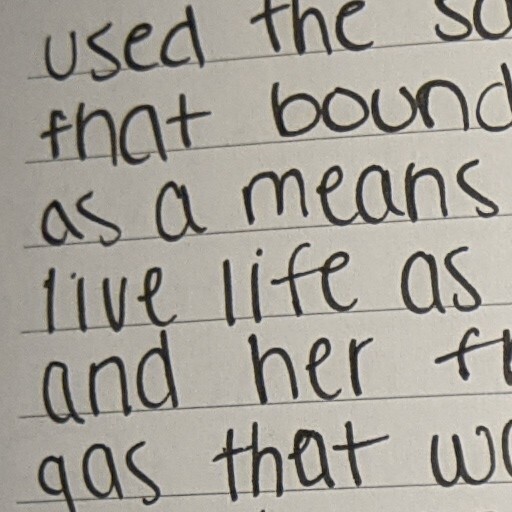 used the so
that bound
as a means
live life as
and her fr
gas that wo